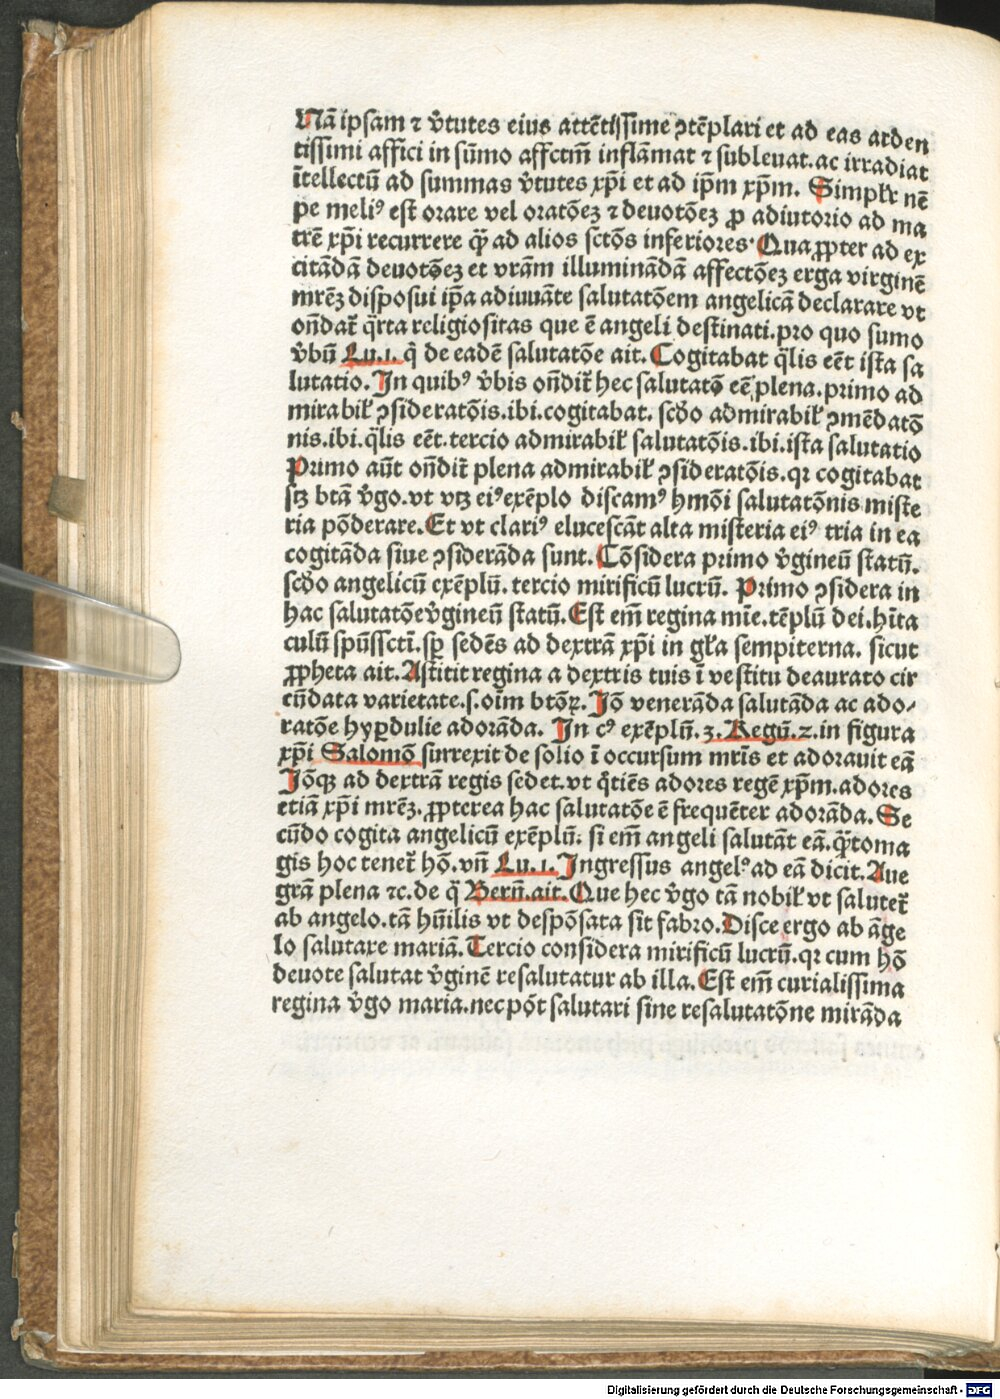 Nā ipsam ⁊ v̄tutes eius attētissime ↄtēplari et ad eas arden
tissimi affici in sūmo affctm̄ inflāmat ⁊ subleuat. ac irradiat
ītellectū ad summas v̄tutes xp̄i et ad ip̄m xp̄m. Simpłr nē
pe meliꝰ est orare vel oratōeȝ ⁊ deuotōeȝ ꝓ adiutorio ad ma
trē xp̄i recurrere qͣ̄ ad alios sctōs inferiores· Qua ꝓpter ad ex
citādā deuotōeȝ et vrām illuminādā affectōeȝ erga virginē
mrēȝ disposui ip̄a adiuuāte salutatōem angelicā declarare vt
on̄dat̄ q̄rta religiositas que ē angeli destinati. pro quo sumo
v̄bū Lu. 1. q̄ de eadē salutatōe ait. Cogitabat q̄lis eēt ista sa
lutatio. In quibꝰ v̄bis on̄dit̄ hec salutatō eē plena. primo ad
mirabił ↄsideratōis. ibi. cogitabat. scd̄o admirabił ↄmēdatō
nis. ibi. q̄lis eēt. tercio admirabił salutatōis. ibi. ista salutatio
Primo aūt on̄dit̄ plena admirabił ↄsideratōis. qꝛ cogitabat
sȝ btā v̄go. vt vtȝ eiꝰ exēplo discamꝰ hmōi salutatōnis miste
ria pōderare. Et vt clariꝰ elucescāt alta misteria eiꝰ tria in ea
cogitāda siue ↄsiderāda sunt. Cōsidera primo v̄gineū statū.
scd̄o angelicū exēplū. tercio mirificū lucrū. Primo ↄsidera in
hac salutatōe v̄gineū statū. Est em̄ regina mīe. tēplū dei. hīta
culū spūssctī. sꝑ sedēs ad dextrā xp̄i in gła sempiterna. sicut
ꝓpheta ait. Astitit regina a dextris tuis ī vestitu deaurato cir
cūdata varietate. s. oīm btōꝝ. Jō venerāda salutāda ac ado⸗
ratōe hyꝑdulie adorāda. In cꝰ exēplū. 3. Regū. 2. in figura
xp̄i Salomō surrexit de solio ī occursum mrīs et adorauit eā
Jōqꝫ ad dextrā regis sedet. vt q̄tiēs adores regē xp̄m. adores
etiā xp̄i mrēȝ. ꝓpterea hac salutatōe ē frequēter adorāda. Se
cūdo cogita angelicū exēplū. si em̄ angeli salutāt eā. qͣ̄toma
gis hoc tenet̄ hō. vn̄ Lu. 1. Ingressus angelꝰ ad eā dicit. Aue
grā plena ⁊c. de q̄ Berū. ait. Que hec v̄go tā nobił vt salutet̄
ab angelo. tā hūilis vt despōsata sit fabro. Disce ergo ab āge
lo salutare mariā. Tercio considera mirificū lucrū. qꝛ cum hō
deuote salutat v̄ginē resalutatur ab illa. Est em̄ curialissima
regina v̄go maria. nec pōt salutari sine resalutatōne mirāda
Digitalisierung gefördert durch die Deutsche Forschungsgemeinschaft - DFG